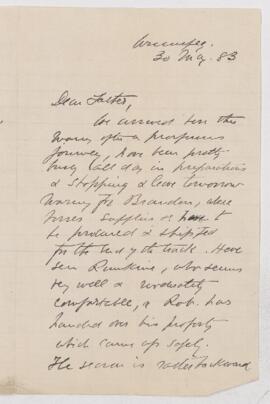 Winnipeg.
30 May. 83
Dear Father,
We arrived here this
morning after a prosperous
journey, have been pretty
busy all day in preparations
& shopping & leave tomorrow
morning for Brandon, where
horses supplies &c have to
be procured & shipped
for the end of the track. Have
seen Rankine, who seems
very well & moderately
comfortable, & Rob. has
handed over his property
which came up safely.
The season is rather backward